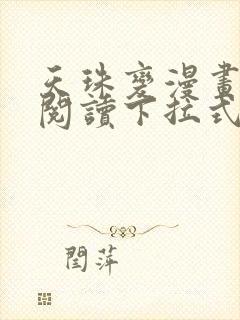 天珠變漫畫
閱讀下拉式
閆萍